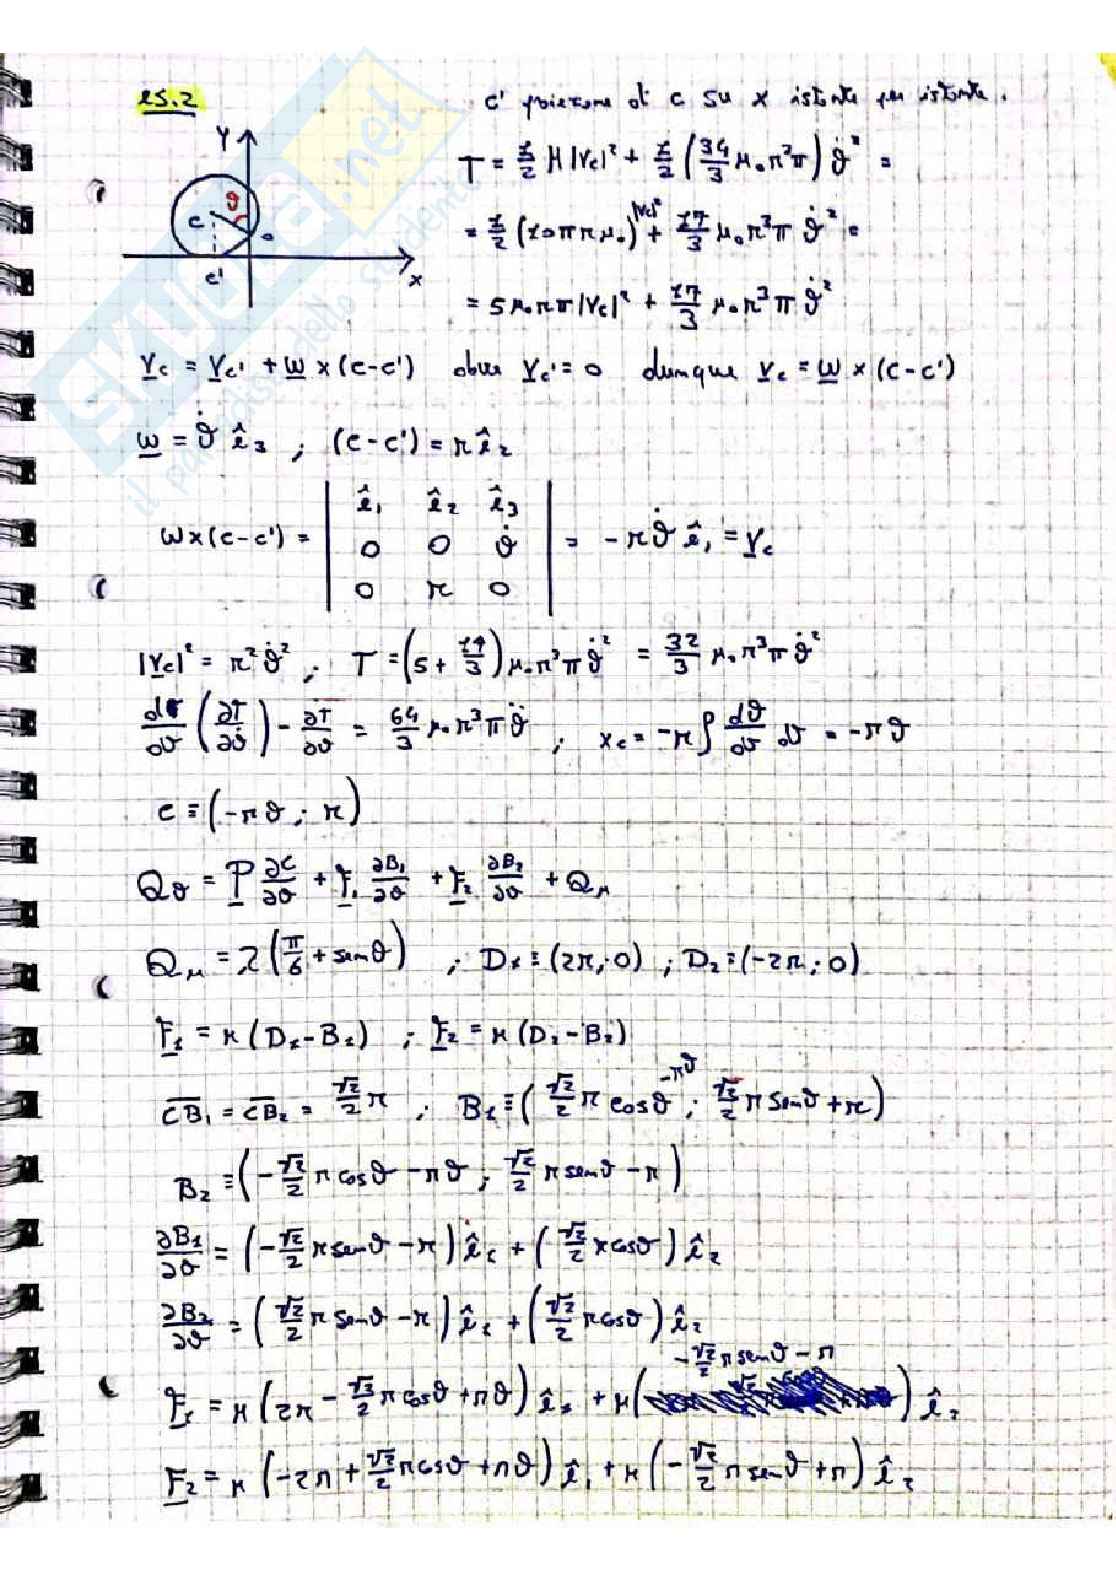 es.2
C' posizione di C su x istante per istante.
Y
ϑ
C
C'
x
T = 1/2 M |v_c|² + 1/2 (34/3 μ₀ r³ π) ϑ̇² =
= 1/2 (10 π r μ₀) |v_c|² + 17/3 μ₀ r³ π ϑ̇² =
= 5 μ₀ r π |v_c|² + 17/3 μ₀ r³ π ϑ̇²
v_c = v_c' + ω × (C - C') dove v_c' = 0 dunque v_c = ω × (C - C')
ω = ϑ̇ ê₃ ; (C - C') = r ê₂
ω × (C - C') = | ê₁ ê₂ ê₃
0 0 ϑ̇
0 r 0 | = - r ϑ̇ ê₁ = v_c
|v_c|² = r² ϑ̇² ; T = (5 + 17/3) μ₀ r³ π ϑ̇² = 32/3 μ₀ r³ π ϑ̇²
d/dt (∂T/∂ϑ̇) - ∂T/∂ϑ = 64/3 μ₀ r³ π ϑ̈ ; x_c = - r ∫ dϑ/dt dt = - r ϑ
C ≡ (- r ϑ ; r)
Q_ϑ = P ∂C/∂ϑ + F₁ ∂B₁/∂ϑ + F₂ ∂B₂/∂ϑ + Q_μ
Q_μ = λ (π/6 + sen ϑ) ; D₁ ≡ (2r ; 0) ; D₂ ≡ (-2r ; 0)
F₁ = k (D₁ - B₁) ; F₂ = k (D₂ - B₂)
CB₁ = CB₂ = √2/2 r ; B₁ ≡ (√2/2 r cos ϑ - r ϑ ; √2/2 r sen ϑ + r)
B₂ ≡ (- √2/2 r cos ϑ - r ϑ ; √2/2 r sen ϑ - r)
∂B₁/∂ϑ = (- √2/2 r sen ϑ - r) ê₁ + (√2/2 r cos ϑ) ê₂
∂B₂/∂ϑ = (√2/2 r sen ϑ - r) ê₁ + (√2/2 r cos ϑ) ê₂
F₁ = k (2r - √2/2 r cos ϑ + r ϑ) ê₁ + k (- √2/2 r sen ϑ - r) ê₂
F₂ = k (-2r + √2/2 r cos ϑ + r ϑ) ê₁ + k (- √2/2 r sen ϑ + r) ê₂
SKUOLA.net
il paradiso dello studente